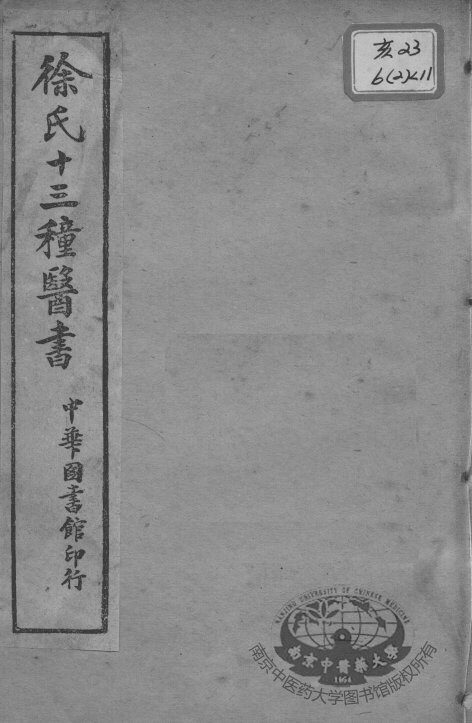 徐氏十三種醫書
中華圖書館印行
亥23
6(2)<11
NANJING UNIVERSITY OF CHINESE MEDICINE
南京中醫藥大學
1954
南京中医药大学图书馆版权所有